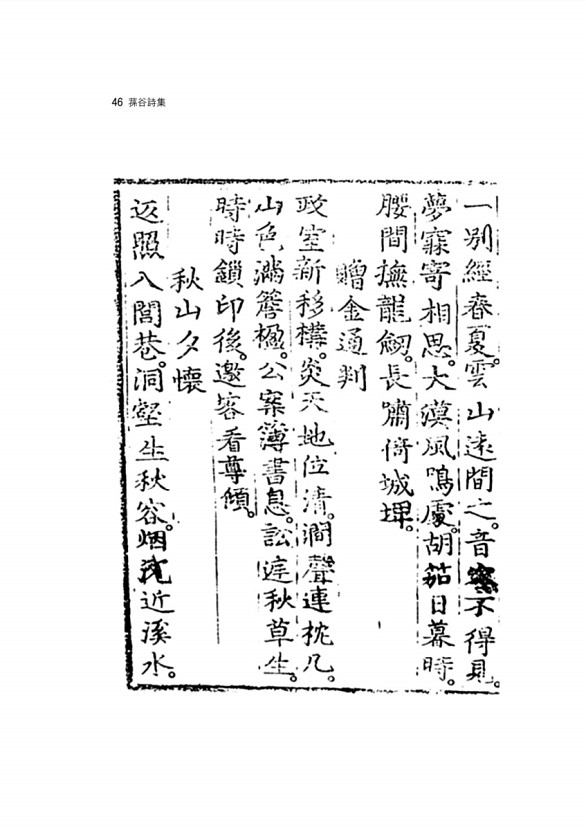 46 蓀谷詩集
一別經春夏。雲山遠間之。音不得見。
夢寐寄相思。大漠風鳴處。胡茄日暮時。
腰間撫龍劒。長嘯倚城埤。
贈金通判
政堂新移構。炎天地位清。澗聲連枕几。
山色滿簷楹。公案簿書息。訟庭秋草生。
時時鎖印後。邀客看尊傾。
秋山夕懷
返照入閭巷。洞壑生秋容。烟沈近溪水。